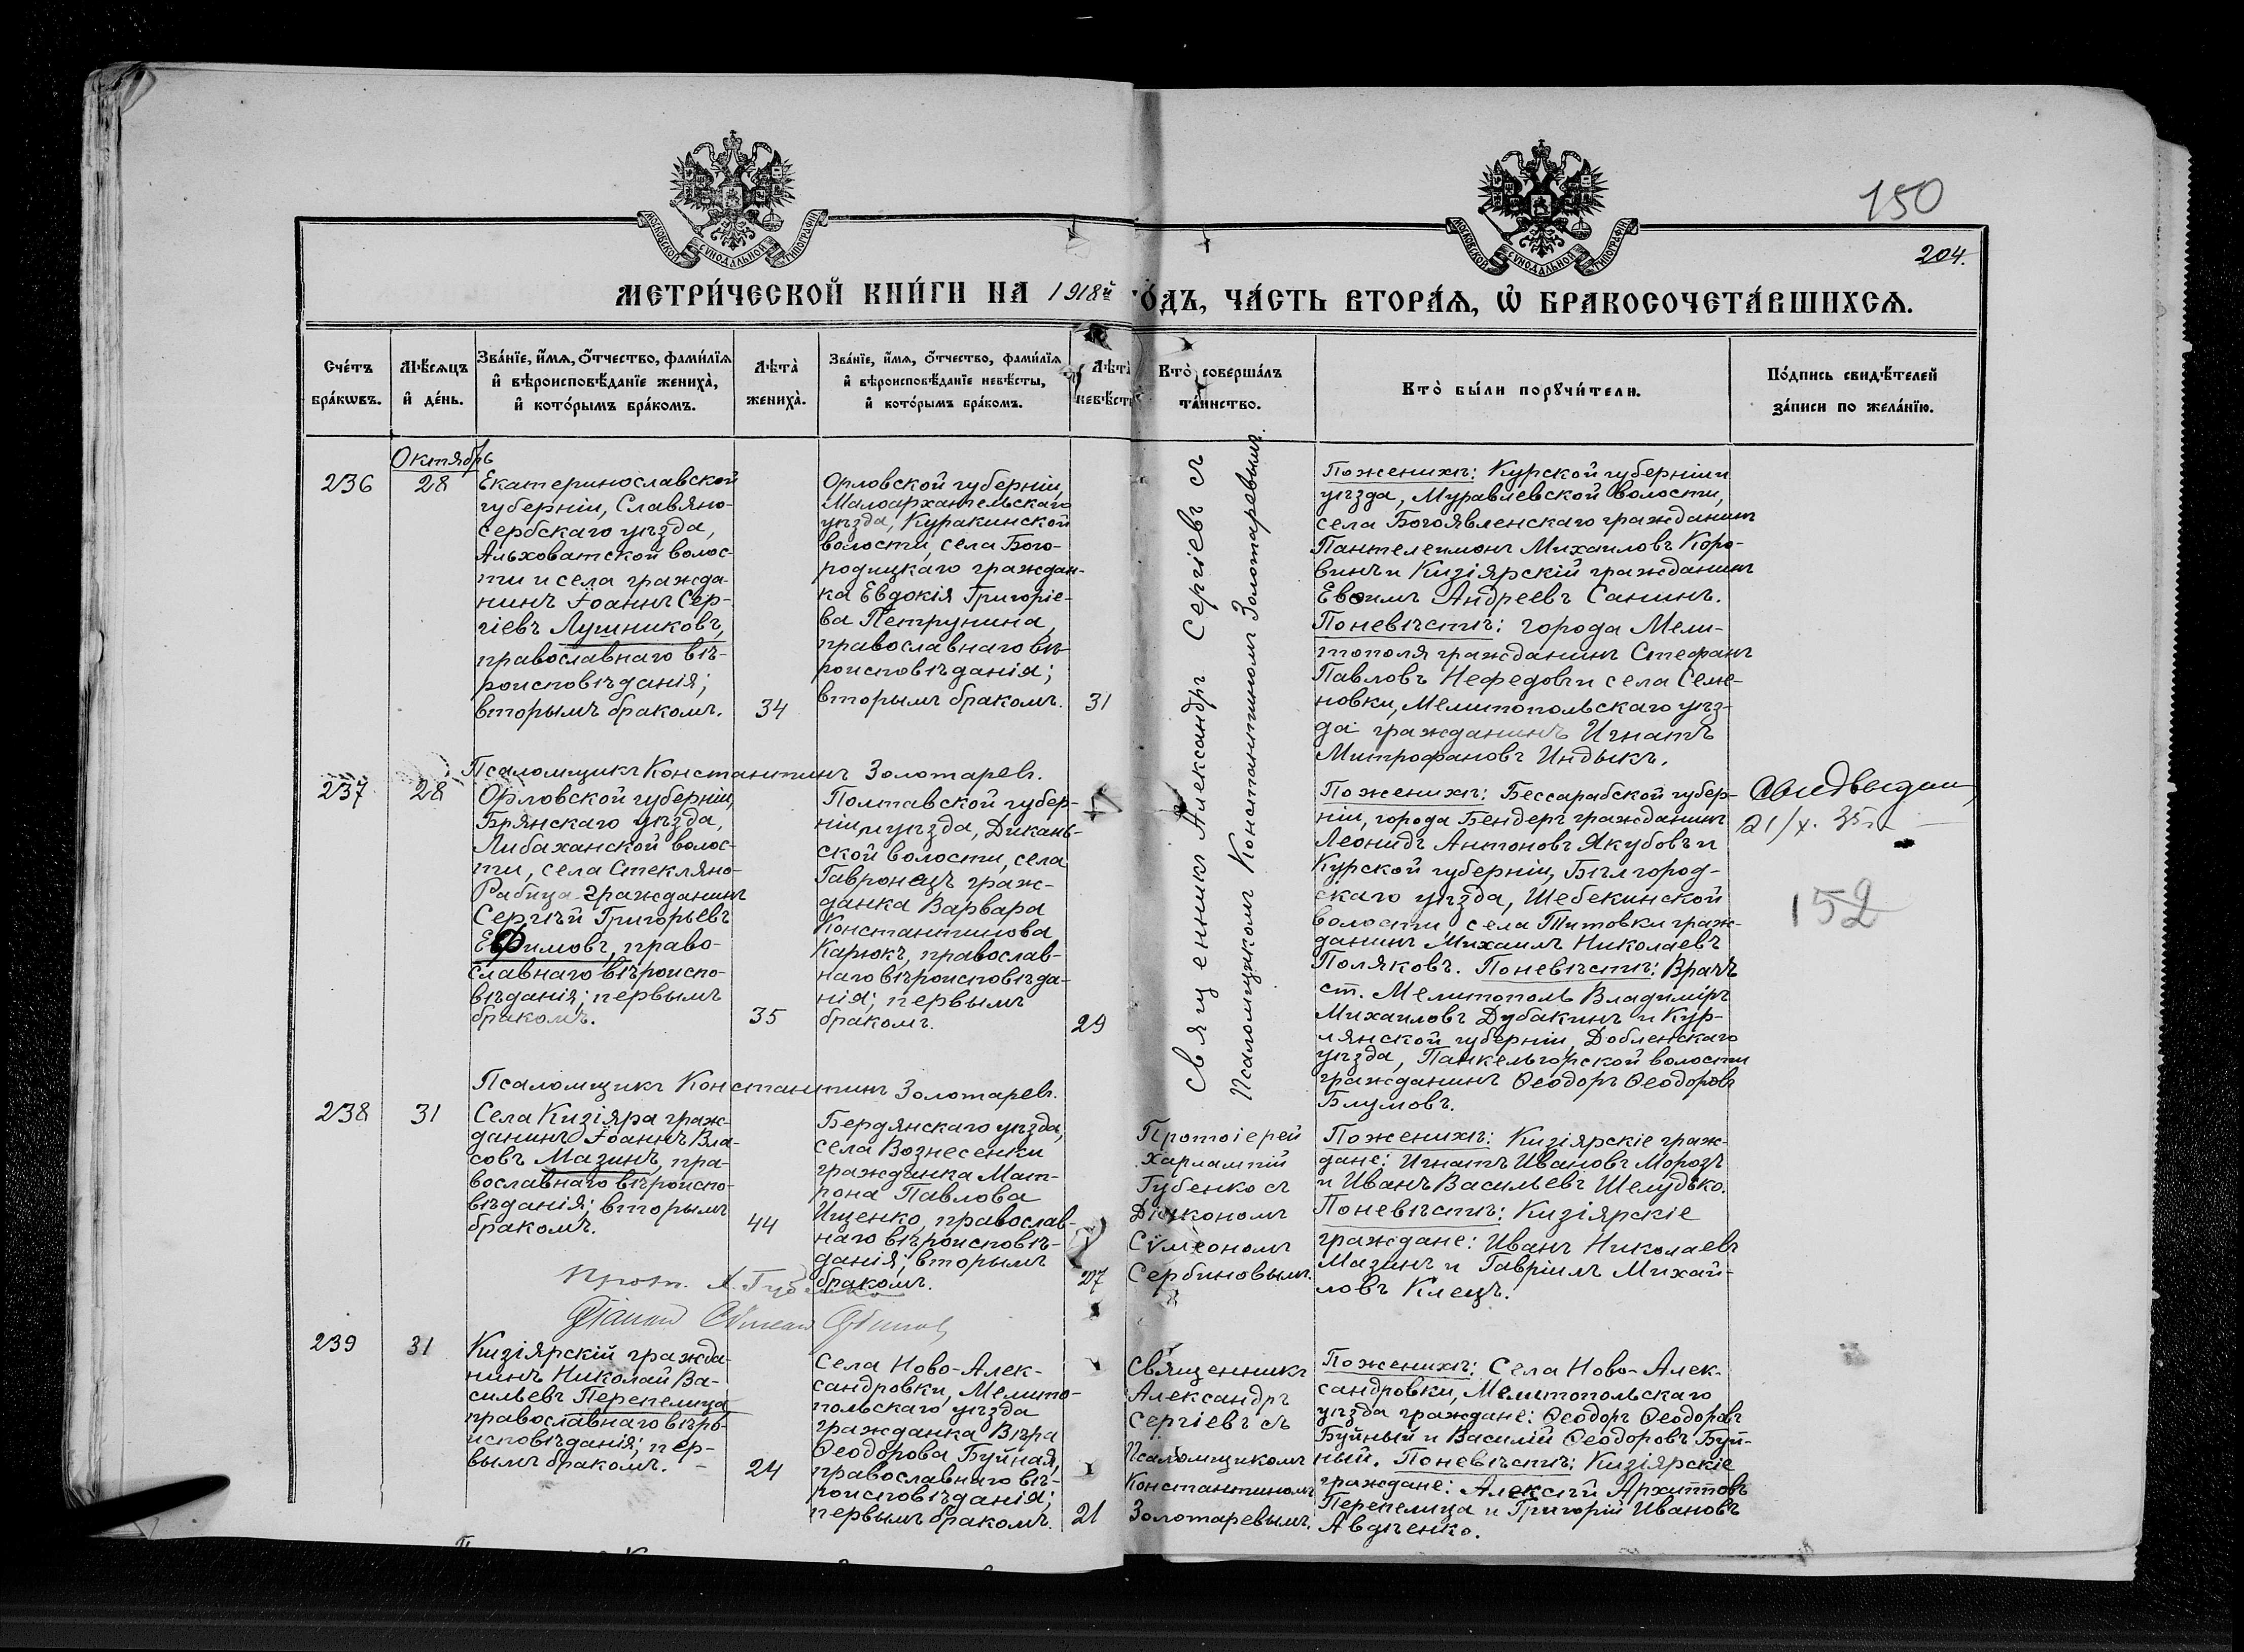 150
204.
МОСКОВСКОЙ СУНОДАЛЬНОЙ ТИПОГРАФІИ
МОСКОВСКОЙ СУНОДАЛЬНОЙ ТИПОГРАФІИ
МЕТРИ́ЧЕСКОЙ КНИ́ГИ НА 1918й го́дъ, ча́сть втора́ѧ, ѽ бракосочета́вшихсѧ.
Сче́тъ
бра́кѡвъ.
Мѣ́сѧцъ
и҆ де́нь.
Зва́нїе, и҆́мѧ, ѻ҆́тчество, фами́лїѧ
и҆ вѣроисповѣ́данїе жениха̀,
и҆ кото́рымъ бра́комъ.
Лѣта̀
жениха̀.
Зва́нїе, и҆́мѧ, ѻ҆́тчество, фами́лїѧ
и҆ вѣроисповѣ́данїе невѣ́сты,
и҆ кото́рымъ бра́комъ.
Лѣта̀
невѣ́сты
Кто̀ соверша́лъ
та́инство.
Кто̀ бы́ли порꙋчи́тели.
По́дпись свидѣ́телей
за́писи по жела́нїю.
Октябрь
236
28
Екатеринославской
губерніи, Славяно-
сербскаго уѣзда,
Альховатской волос-
ти и села гражда-
нинъ Іоаннъ Сер-
гіевъ Лушниковъ,
православнаго вѣ-
роисповѣданія;
вторымъ бракомъ.
34
Орловской губерніи,
Малоархангельскаго
уѣзда, Куракинской
волости, села Бого-
родицкаго граждан-
ка Евдокія Григоріе-
ва Петрунина,
православнаго вѣ-
роисповѣданія;
вторымъ бракомъ.
31
Священникъ Александръ Сергіевъ съ
Псаломщикомъ Константиномъ Золотаревымъ.
По женихѣ: Курской губерніи и
уѣзда, Муравлевской волости,
села Богоявленскаго гражданинъ
Пантелеимонъ Михаиловъ Коро-
винъ и Кизіярскій гражданинъ
Евѳимъ Андреевъ Санинъ.
По невѣстѣ: города Мели-
тополя гражданинъ Стефанъ
Павловъ Нефедовъ и села Семе-
новки, Мелитопольскаго уѣз-
да гражданинъ Игнатъ
Митрофановъ Индыкъ.
Псаломщикъ Константинъ Золотаревъ.
237
28
Орловской губерніи,
Брянскаго уѣзда,
Любаханской волос-
ти, села Стекляно-
Рабица гражданинъ
Сергѣй Григорьевъ
Ефимовъ, право-
славнаго вѣроиспо-
вѣданія; первымъ
бракомъ.
35
Полтавской губер-
ніи и уѣзда, Дикань-
ской волости, села
Гавронецъ граж-
данка Варвара
Константинова
Карюкъ, православ-
наго вѣроисповѣда-
нія; первымъ
бракомъ.
29
По женихѣ: Бессарабской губер-
ніи, города Бендеръ гражданинъ
Леонидъ Антоновъ Якубовъ и
Курской губерніи, Бѣлгород-
скаго уѣзда, Шебекинской
волости, села Титовки граж-
данинъ Михаилъ Николаевъ
Поляковъ. По невѣстѣ: Врачъ
ст. Мелитополь Владиміръ
Михаиловъ Дубакинъ и Кур-
лянской губерніи, Добленскаго
уѣзда, Панкельгофской волости
гражданинъ Ѳеодоръ Ѳеодоровъ
Блумовъ.
21/X. 35г.
152
Псаломщикъ Константинъ Золотаревъ.
238
31
Села Кизіяра граж-
данинъ Іоаннъ Вла-
совъ Мазинъ, пра-
вославнаго вѣроиспо-
вѣданія; вторымъ
бракомъ.
44
Бердянскаго уѣзда,
села Вознесенки
гражданка Мат-
рона Павлова
Ищенко, православ-
наго вѣроисповѣ-
данія; вторымъ
бракомъ.
27
Протоіерей
Харлампій
Губенко съ
Діакономъ
Сѵмеономъ
Сербиновымъ.
По женихѣ: Кизіярскіе граж-
дане: Игнатъ Ивановъ Морозъ
и Иванъ Васильевъ Шелудько.
По невѣстѣ: Кизіярскіе
граждане: Иванъ Николаевъ
Мазинъ и Гавріилъ Михай-
ловъ Клецъ.
Прот. Х. Губенко
239
31
Кизіярскій гражда-
нинъ Николай Ва-
сильевъ Перепелица
православнаго вѣро-
исповѣданія; пер-
вымъ бракомъ.
24
Села Ново-Алек-
сандровки, Мелито-
польскаго уѣзда
гражданка Вѣра
Ѳеодорова Буйная,
православнаго вѣ-
роисповѣданія;
первымъ бракомъ.
21
Священникъ
Александръ
Сергіевъ съ
Псаломщикомъ
Константиномъ
Золотаревымъ.
По женихѣ: Села Ново-Алек-
сандровки, Мелитопольскаго
уѣзда граждане: Ѳеодоръ Ѳеодоровъ
Буйный и Василій Ѳеодоровъ Буй-
ный. По невѣстѣ: Кизіярскіе
граждане: Алексѣй Архипповъ
Перепелица и Григорій Ивановъ
Авдѣенко.